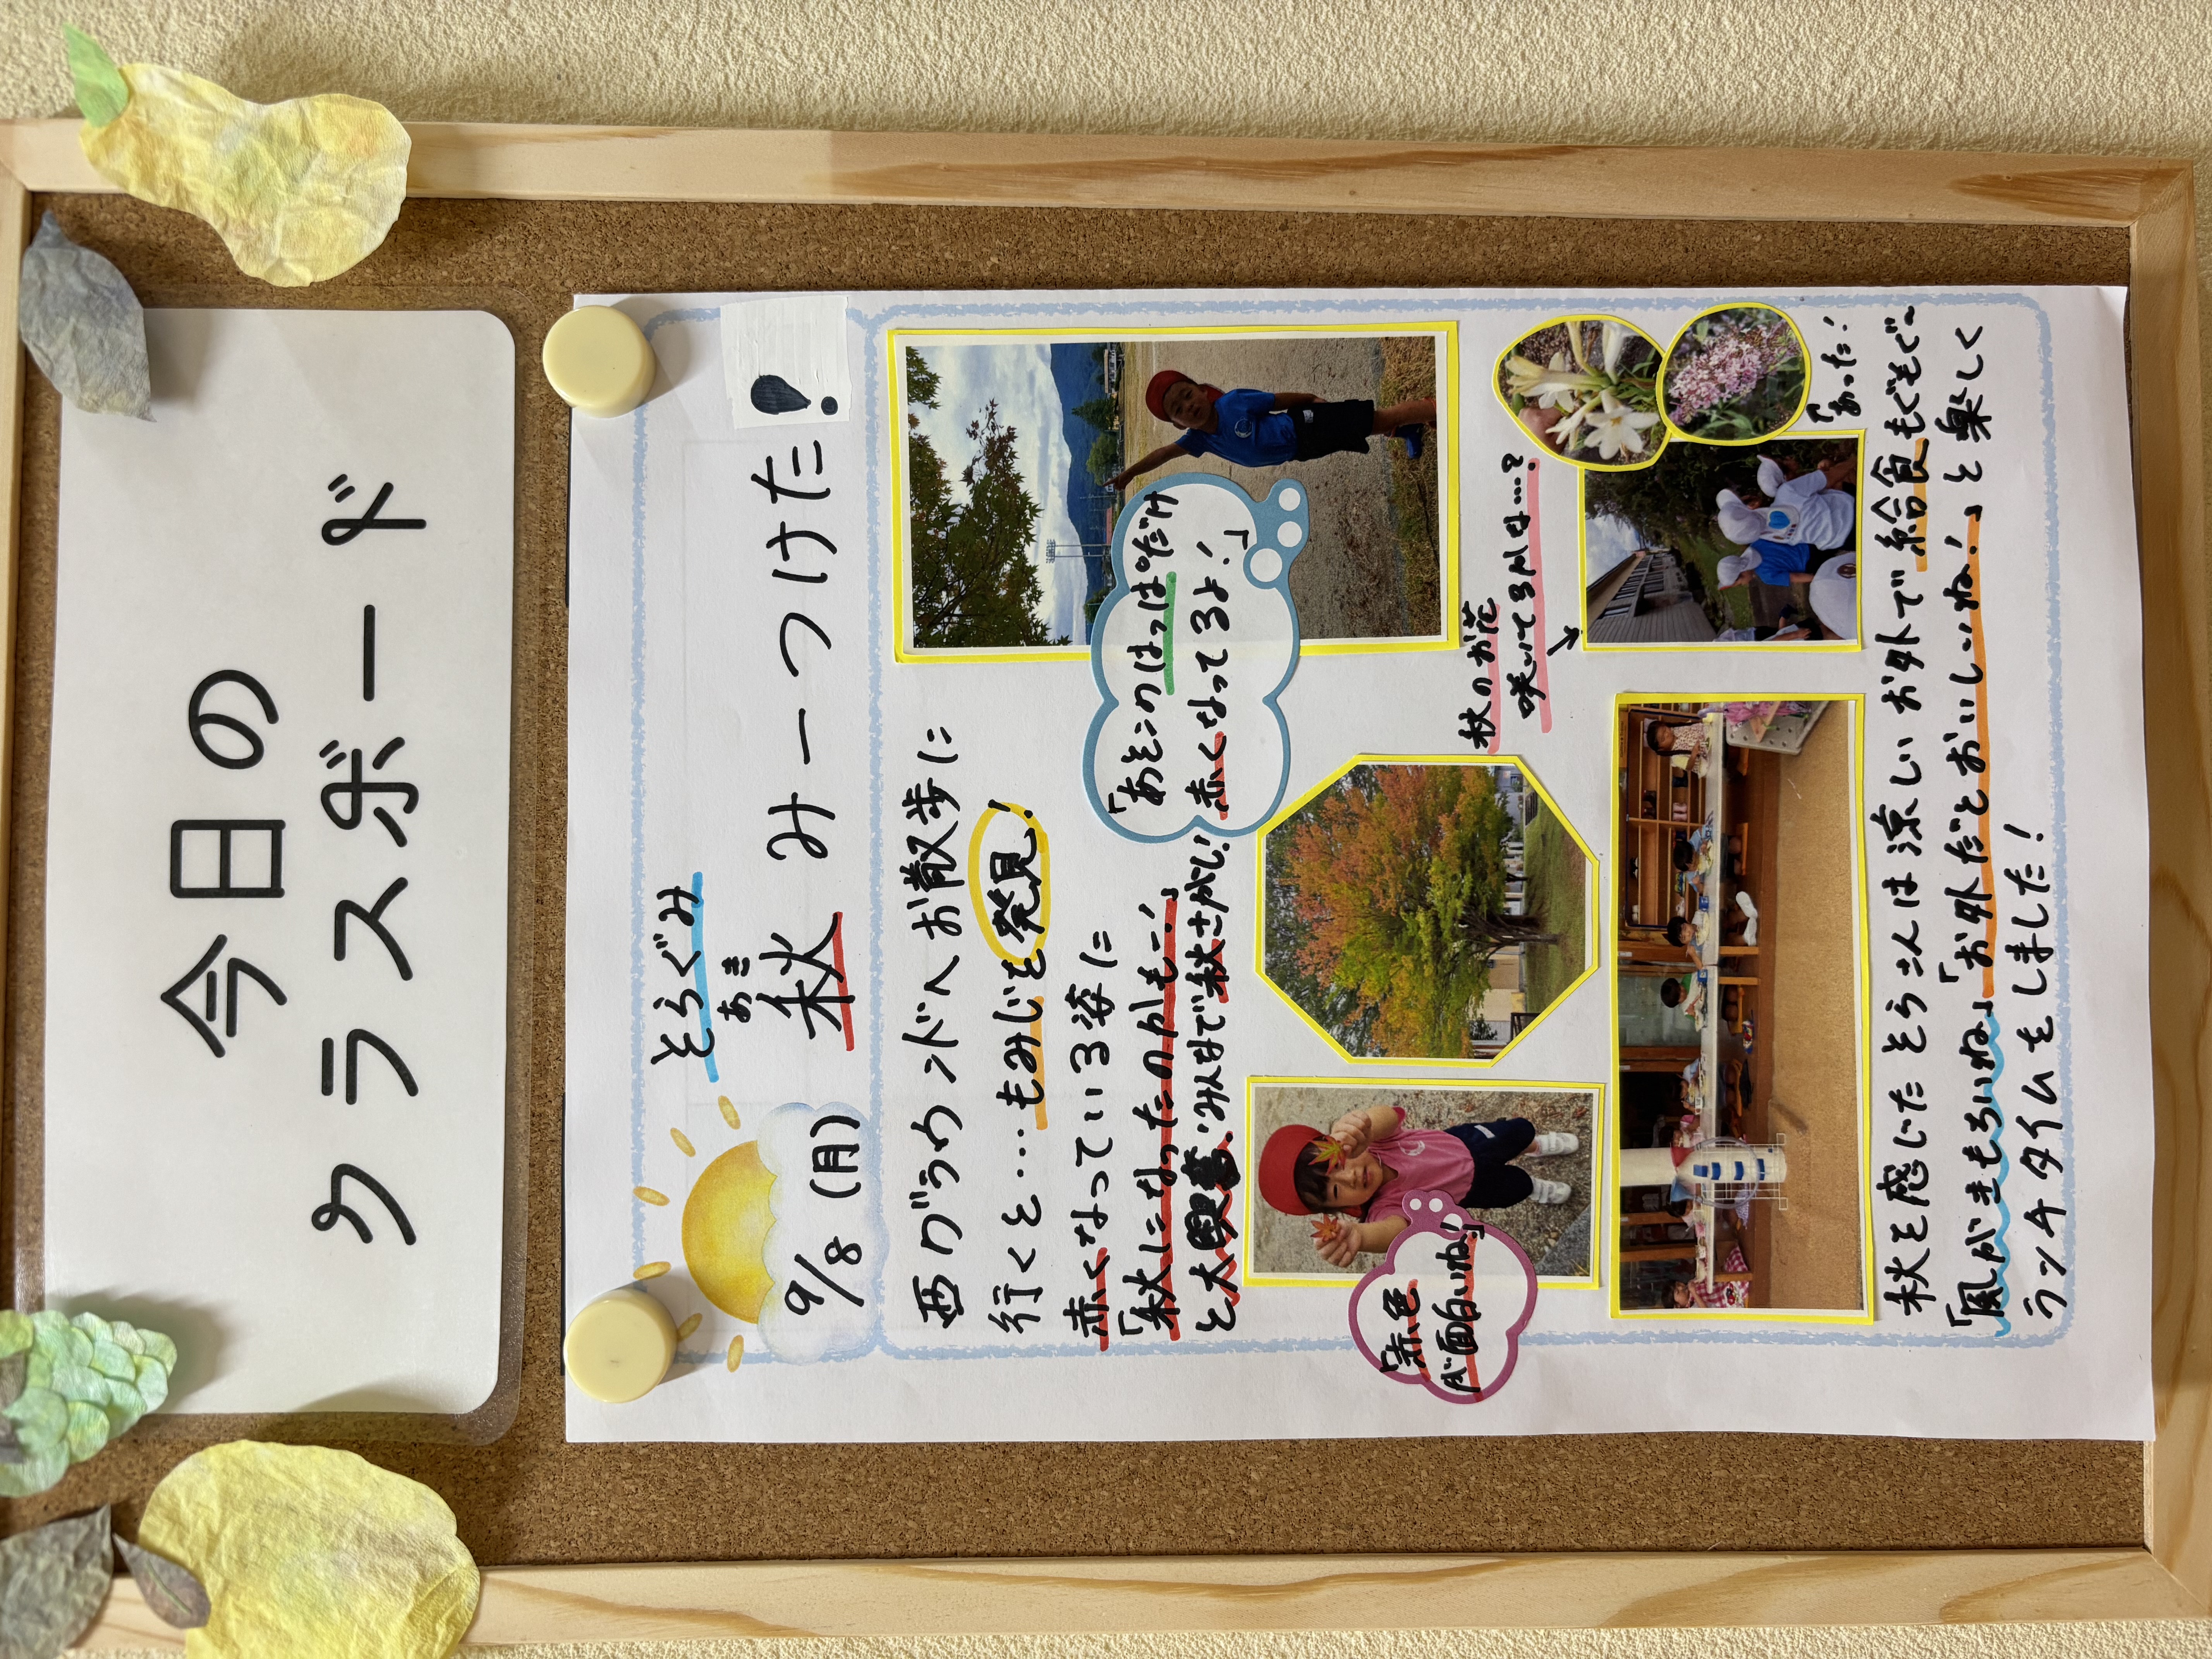 今日の
クラスボード
そらぐみ
9/8(月)
あき
秋 みーつけた!
西グラウンドへお散歩に
行くと…もみじを発見!
赤くなっている姿に
「秋になったのかもー!」
と大興奮。みんなで秋さがし!
「あそこのはっぱだけ
赤くなってるよ!」
「赤色
が面白いね」
秋のお花
咲いてるかな…?
「あった!
秋を感じたそらさんは涼しいお外で給食もぐもぐ〜
「風がきもちいね」「お外だとおいしいね!」と楽しく
ランチタイムをしました!